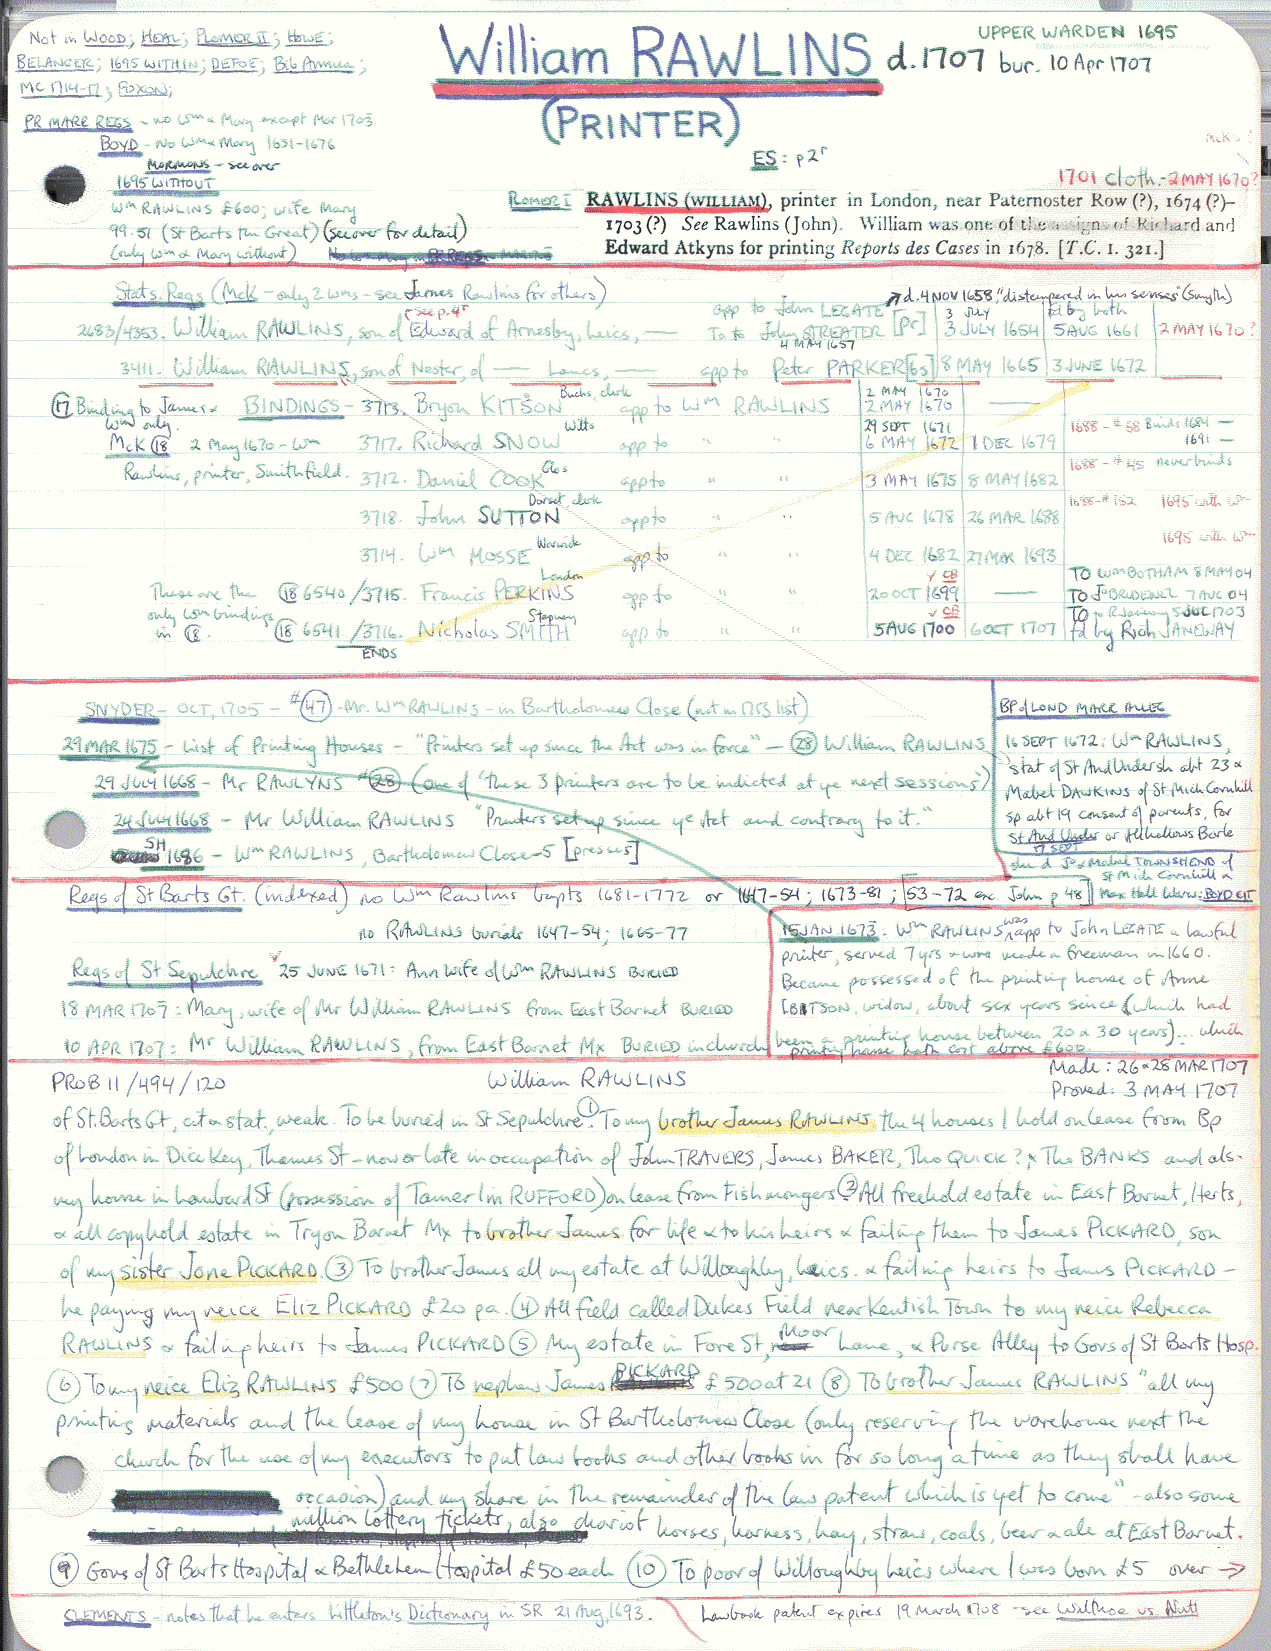 Not in WOOD; HEAL; PLOMER II; HOWE;
BELANGER; 1695 WITHIN; DEFOE; Bib Annua;
MC 1714-17; FOXON;
PR MARR REGS - no Wm & Mary except Mar 1703
BOYD - No Wm & Mary 1651-1676
MORMONS - see over
1695 WITHOUT
Wm RAWLINS £600; wife Mary
99.51 (St Barts the Great) (see over for detail)
(only Wm & Mary without)
William RAWLINS d. 1707
(PRINTER)
UPPER WARDEN 1695
bur. 10 Apr 1707
ES: p2r
1701 cloth. - 2 MAY 1670?
PLOMER I RAWLINS (WILLIAM), printer in London, near Paternoster Row (?), 1674 (?)–
1703 (?) See Rawlins (John). William was one of the assigns of Richard and
Edward Atkyns for printing Reports des Cases in 1678. [T.C. I. 321.]
Stats. Regs (McK - only 2 Wms - see James Rawlins for others)
d. 4 NOV 1658, "distempered in his senses" (Smyth)
(see p.4r
app to John LEGATE
3 July
fd by both
2683/4353. William RAWLINS, son of Edward of Arnesby, Leics, — To to John STREATER [pr] 3 JULY 1654 5 AUG 1661 2 MAY 1670?
4 MAY 1657
3411. William RAWLINS, son of Nester, of — Lancs, — app to Peter PARKER [bs] 8 MAY 1665 3 JUNE 1672
(17) Binding to James &
Wm only.
McK (18) 2 May 1670 - Wm
Rawlins, printer, Smithfield.
BINDINGS - 3713. Bryon KITSON Bucks, clerk app to Wm RAWLINS 2 MAY 1670 2 MAY 1670 —
3717. Richard SNOW Wilts app to " " 29 SEPT 1671 6 MAY 1672 1 DEC 1679 1688 - #58 Binds 1684 —
1691 —
3712. Daniel COOK Glos app to " " 3 MAY 1675 8 MAY 1682 1688 - #45 never binds
3718. John SUTTON Dorset clerk app to " " 5 AUG 1678 26 MAR 1688 1688 - #152 1695 with Wm
3714. Wm MOSSE Warwick app to " " 4 DEC 1682 27 MAR 1693 1695 with Wm
These are the
only Wm bindings
in (18).
(18) 6540/3715. Francis PERKINS London app to " " ✓ CB 20 OCT 1699 — TO Wm BOTHAM 8 MAY 04
TO Jo BRUDENEL 7 AUG 04
(18) 6541/3716. Nicholas SMITH Stepney app to " " ✓ CB 5 AUG 1700 6 OCT 1707 TO R Janeway 5 JUL 1703
fd by Rich JANEWAY
ENDS
SNYDER - OCT, 1705 - #(47) - Mr. Wm RAWLINS - in Bartholomew Close (not in 1713 list)
29 MAR 1675 - List of Printing Houses - "Printers set up since the Act was in force" - (28) William RAWLINS
29 JULY 1668 - Mr RAWLYNS #(28) (one of 'these 3 printers are to be indicted at ye next sessions')
24 JULY 1668 - Mr William RAWLINS "Printers set up since ye Act and contrary to it."
SH 1686 - Wm RAWLINS, Bartholomew Close - 5 [presses]
BP of LOND MARR ALLEG
16 SEPT 1672: Wm RAWLINS,
stat of St And Undersh abt 23 &
Mabel DAWKINS of St Mich Cornhill
sp abt 19 consent of parents, for
St And Under or Allhallows Barle
17 SEPT
she d Jo & Mabel TOWNSHEND of
St Mich Cornhill
Regs of St Barts Gt. (indexed) no Wm Rawlins bapts 1681-1772 or 1647-54; 1673-81; 53-72 exc. John p 48
no RAWLINS burials 1647-54; 1665-77
Regs of St Sepulchre 25 JUNE 1671: Ann wife of Wm RAWLINS BURIED
18 MAR 1707: Mary, wife of Mr William RAWLINS from East Barnet BURIED
10 APR 1707: Mr William RAWLINS, from East Barnet Mx BURIED in church
15 JAN 1673: Wm RAWLINS was app to John LEGATE a lawful
printer, served 7 yrs & was made a freeman in 1660.
Became possessed of the printing house of Anne
IBBITSON, widow, about sex years since (which had
been a printing house between 20 & 30 years)... which
printing house hath cost above £600.
PROB 11/494/120 William RAWLINS
Made: 26 & 28 MAR 1707
Proved: 3 MAY 1707
of St. Barts Gt, cit & stat., weak. To be buried in St Sepulchre. (1) To my brother James RAWLINS the 4 houses I hold on lease from Bp
of London in Dice Key, Thames St - now or late in occupation of John TRAVERS, James BAKER, Tho QUICK?, & Tho BANKS and als.
my house in Lombard St (possession of Tamerlin RUFFORD) on lease from Fishmongers (2) All freehold estate in East Barnet, Herts,
& all copyhold estate in Tryon Barnet Mx to brother James for life & to his heirs & failing them to James PICKARD, son
of my sister Jone PICKARD. (3) To brother James all my estate at Willoughby, Leics. & failing heirs to James PICKARD -
he paying my neice Eliz PICKARD £20 pa. (4) All field called Dukes Field near Kentish Town to my neice Rebecca
RAWLINS & failing heirs to James PICKARD (5) My estate in Fore St, Moor Lane, & Purse Alley to Govs of St Barts Hosp.
(6) To my neice Eliz RAWLINS £500 (7) To nephew James PICKARD £500 at 21 (8) To brother James RAWLINS "all my
printing materials and the lease of my house in St Bartholomew Close (only reserving the warehouse next the
church for the use of my executors to put law books and other books in for so long a time as they shall have
occasion) and my share in the remainder of the law patent which is yet to come" - also some
million lottery tickets, also chariot horses, harness, hay, straw, coals, beer & ale at East Barnet.
(9) Govs of St Barts Hospital & Bethlehem Hospital £50 each (10) To poor of Willoughby Leics where I was born £5 over →
CLEMENTS - notes that he enters Littleton's Dictionary in SR 21 Aug, 1693.
Lawbook patent expires 19 March 1708 - see Wilthoe vs. Nutt